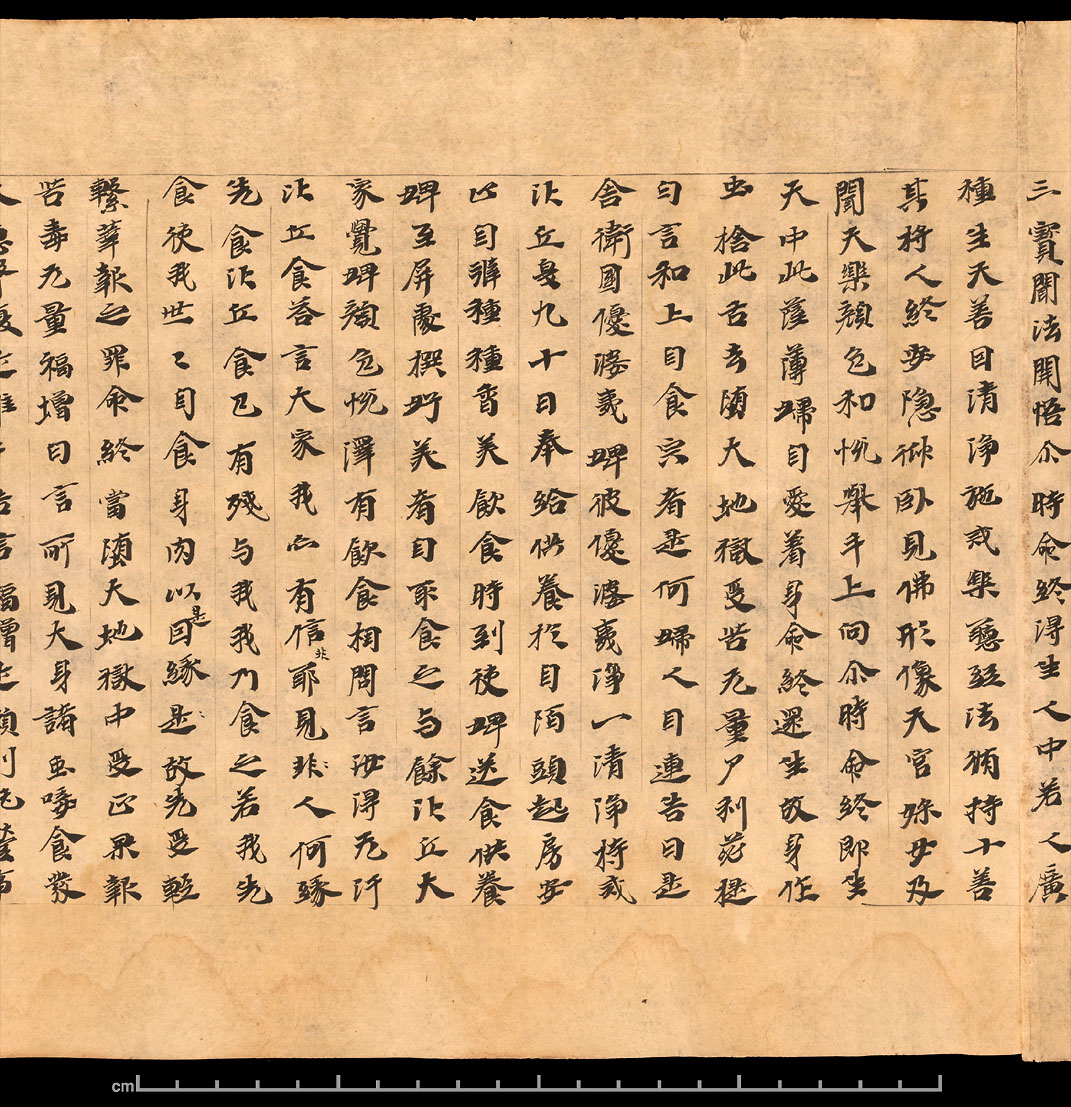 三寶聞法開悟尒時命終得生人中若人廣
種生天善因清淨施戒樂聽経法脩持十善
其将人終安隐卧見佛形像天宮婇女及
聞天樂顏色和悅舉手上向尒時命終即生
天中此薩薄婦自愛着身命終還生故身作
虫捨此舌去堕大地獄受苦无量尸利苾提
白言和上自食宍者是何婦人目連告曰是
舍衛國優婆夷婢彼優婆夷淨一清淨持戒
比丘夏九十日奉給供養於自陌頭起房安
止自辦種種香美飲食時到使婢送食供養
婢至屏處撰好美者自取食之与餘比丘大
家覺婢顏色悅澤有飲食相問言汝得无汙
比丘食荅言大家我亦有信非耶見非人何緣
先食比丘食已有殘与我我乃食之若我先
食使我世〻自食身肉以是因緣是故先受輕
繫華報之罪命終當堕大地獄中受正果報
苦毒无量福增白言所見大身諸虫唼食發